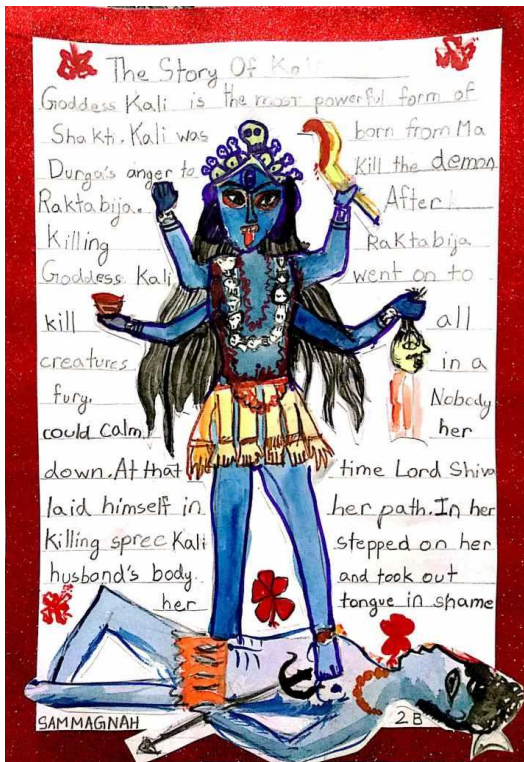 The Story Of Kali
Goddess Kali is the most powerful form of
Shakti. Kali was born from Ma
Durga's anger to Kill the demon
Raktabija. After
Killing Raktabija
Goddess Kali went on to
kill all
creatures in a
fury. Nobody
could calm her
down. At that time Lord Shiva
laid himself in her path. In her
Killing spree Kali stepped on her
husband's body. and took out
her tongue in shame
SAMMAGNAH 2B